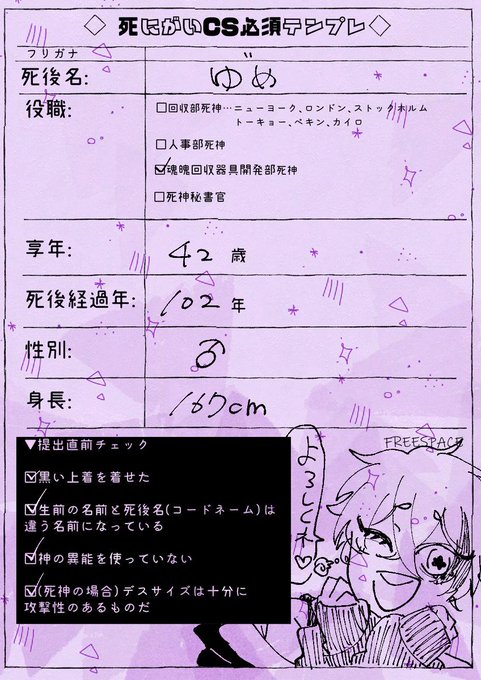 ◇ 死にがいCS必須テンプレ◇
フリガナ
死後名: ゆめ
役職:
□回収部死神…ニューヨーク、ロンドン、ストックホルム
トーキョー、ペキン、カイロ
□人事部死神
☑魂魄回収器具開発部死神
□死神秘書官
享年: 42 歳
死後経過年: 102 年
性別: ♂
身長: 167cm
▼提出直前チェック
☑黒い上着を着せた
☑生前の名前と死後名(コードネーム)は
違う名前になっている
☑神の異能を使っていない
☑(死神の場合)デスサイズは十分に
攻撃性のあるものだ
FREESPACE
よろしくね♡